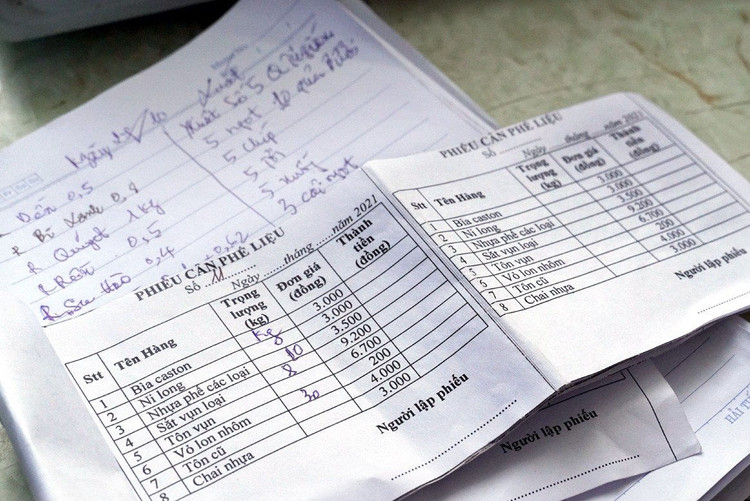 Xuất
Dền 0,5
Bí xanh
Quýt 1kg
0,5
0,4
0,62
5 ngọt
PHIẾU CÂN PHẾ LIỆU
Số Ngày ......tháng......năm 2021
Stt Tên Hàng Trọng lượng (kg) Đơn giá (đồng) Thành tiền (đồng)
1 Bìa caston kg 3.000
2 Ni long 3.000
3 Nhựa phế các loại 10 3.500
4 Sắt vụn loại 8 9.200
5 Tôn vụn 6.700
6 Vỏ lon nhôm 30 200
7 Tôn cũ 4.000
8 Chai nhựa 3.000
Người lập phiếu
PHIẾU CÂN PHẾ LIỆU
Số Ngày ......tháng......năm 2021
Stt Tên Hàng Trọng lượng (kg) Đơn giá (đồng) Thành tiền (đồng)
1 Bìa caston 3.000
2 Ni long 3.000
3 Nhựa phế các loại 3.500
4 Sắt vụn loại 9.200
5 Tôn vụn 6.700
6 Vỏ lon nhôm 200
7 Tôn cũ 4.000
8 Chai nhựa 3.000
Người lập phiếu
Người lập phiếu